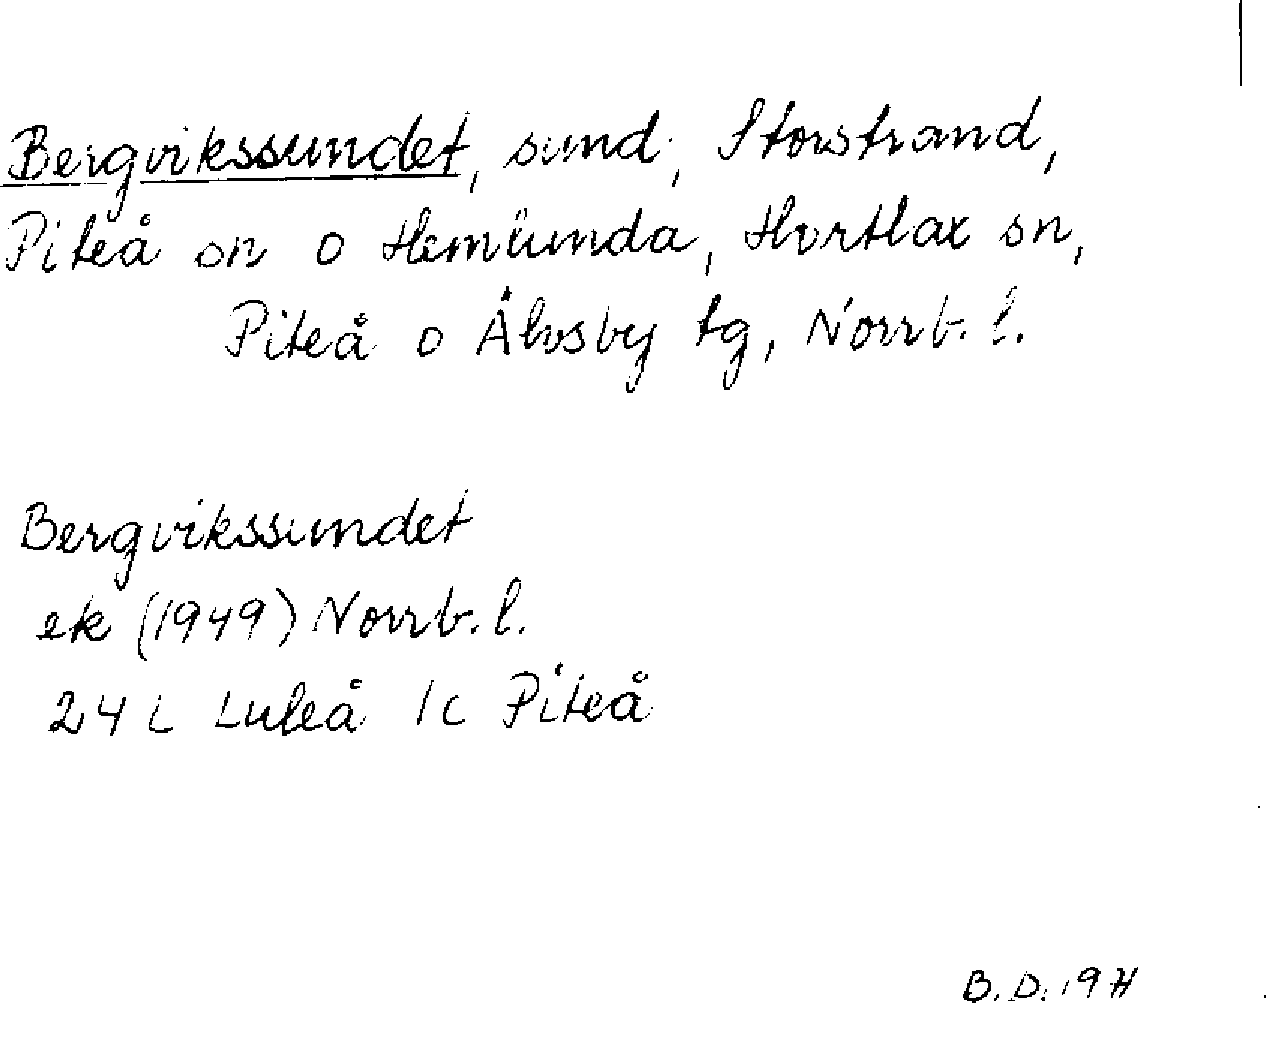 Bergvikssundet, sund, Storstrand,
Piteå sn o Hemlunda, Hortlax sn,
Piteå o Älvsby tg, Norrb. l.
Bergvikssundet
ek (1949) Norrb. l.
24 L Luleå 1c Piteå
B.D.